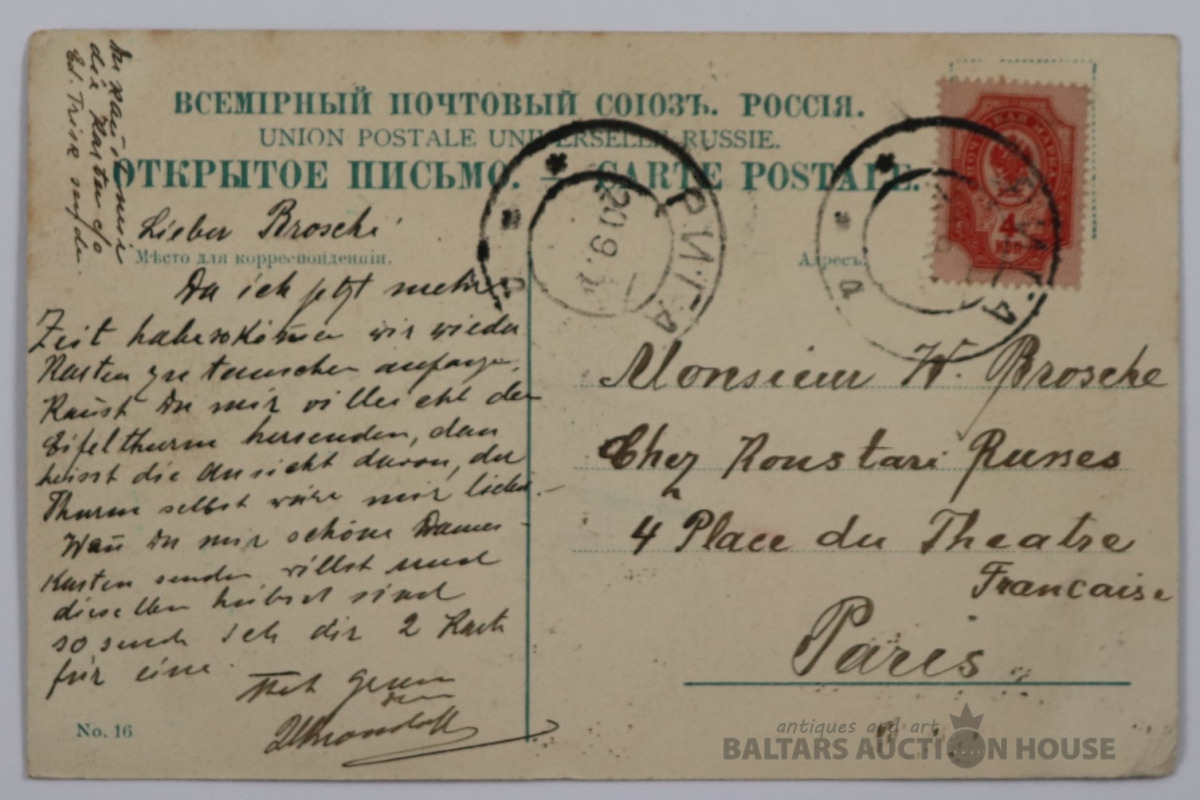 ВСЕМІРНЫЙ ПОЧТОВЫЙ СОЮЗЪ. РОССІЯ.
UNION POSTALE UNIVERSELLE. RUSSIE.
ОТКРЫТОЕ ПИСЬМО. — CARTE POSTALE.
Мѣсто для корреспонденціи.
Адресъ.
Du kannst mir
die Karten c/o
Ed.
Lieber Brosche
Da ich jetzt mehr
Zeit habe so können wir wieder
Karten zu tauschen anfangen.
Kaust Du mir villeicht den
Eifelthurm hersenden, dan
heisst die Ansicht davon, der
Thurm selbst wäre mir lieber.
Wan Du mir schöne Damen-
Karten senden willst und
dieselben hübsch sind
so sende ich dir 2 Kart
für eine.
Mit
РИГА
20 9
РИГА
4
КОП
Monsieur W. Brosche
Chez Konstari Russes
4 Place du Theatre
Francaise
Paris
No. 16
antiques and art
BALTARS AUCTION HOUSE